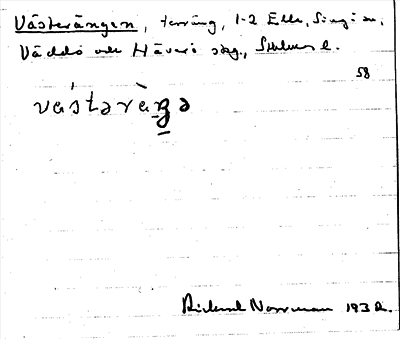 Västerängen, terräng, 1-2 Elle, Singö sn,
Väddö och Häverö skg., Sthlms l.
58
västəräŋə
Rickard Norrman 1932.